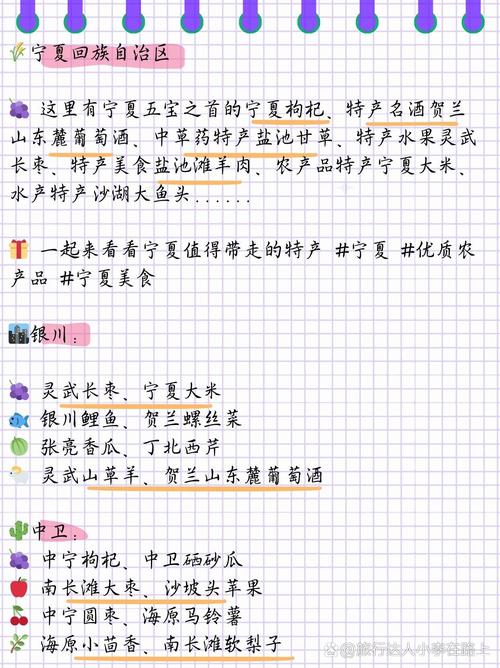 宁夏回族自治区
这里有宁夏五宝之首的宁夏枸杞、特产名酒贺兰
山东麓葡萄酒、中草药特产盐池甘草、特产水果灵武
长枣、特产美食盐池滩羊肉、农产品特产宁夏大米、
水产特产沙湖大鱼头......
一起来看看宁夏值得带走的特产 #宁夏 #优质农
产品 #宁夏美食
银川：
灵武长枣、宁夏大米
银川鲤鱼、贺兰螺丝菜
张亮香瓜、丁北西芹
灵武山草羊、贺兰山东麓葡萄酒
中卫：
中宁枸杞、中卫硒砂瓜
南长滩大枣、沙坡头苹果
中宁圆枣、海原马铃薯
海原小茴香、南长滩软梨子
@旅行达人小李在路上